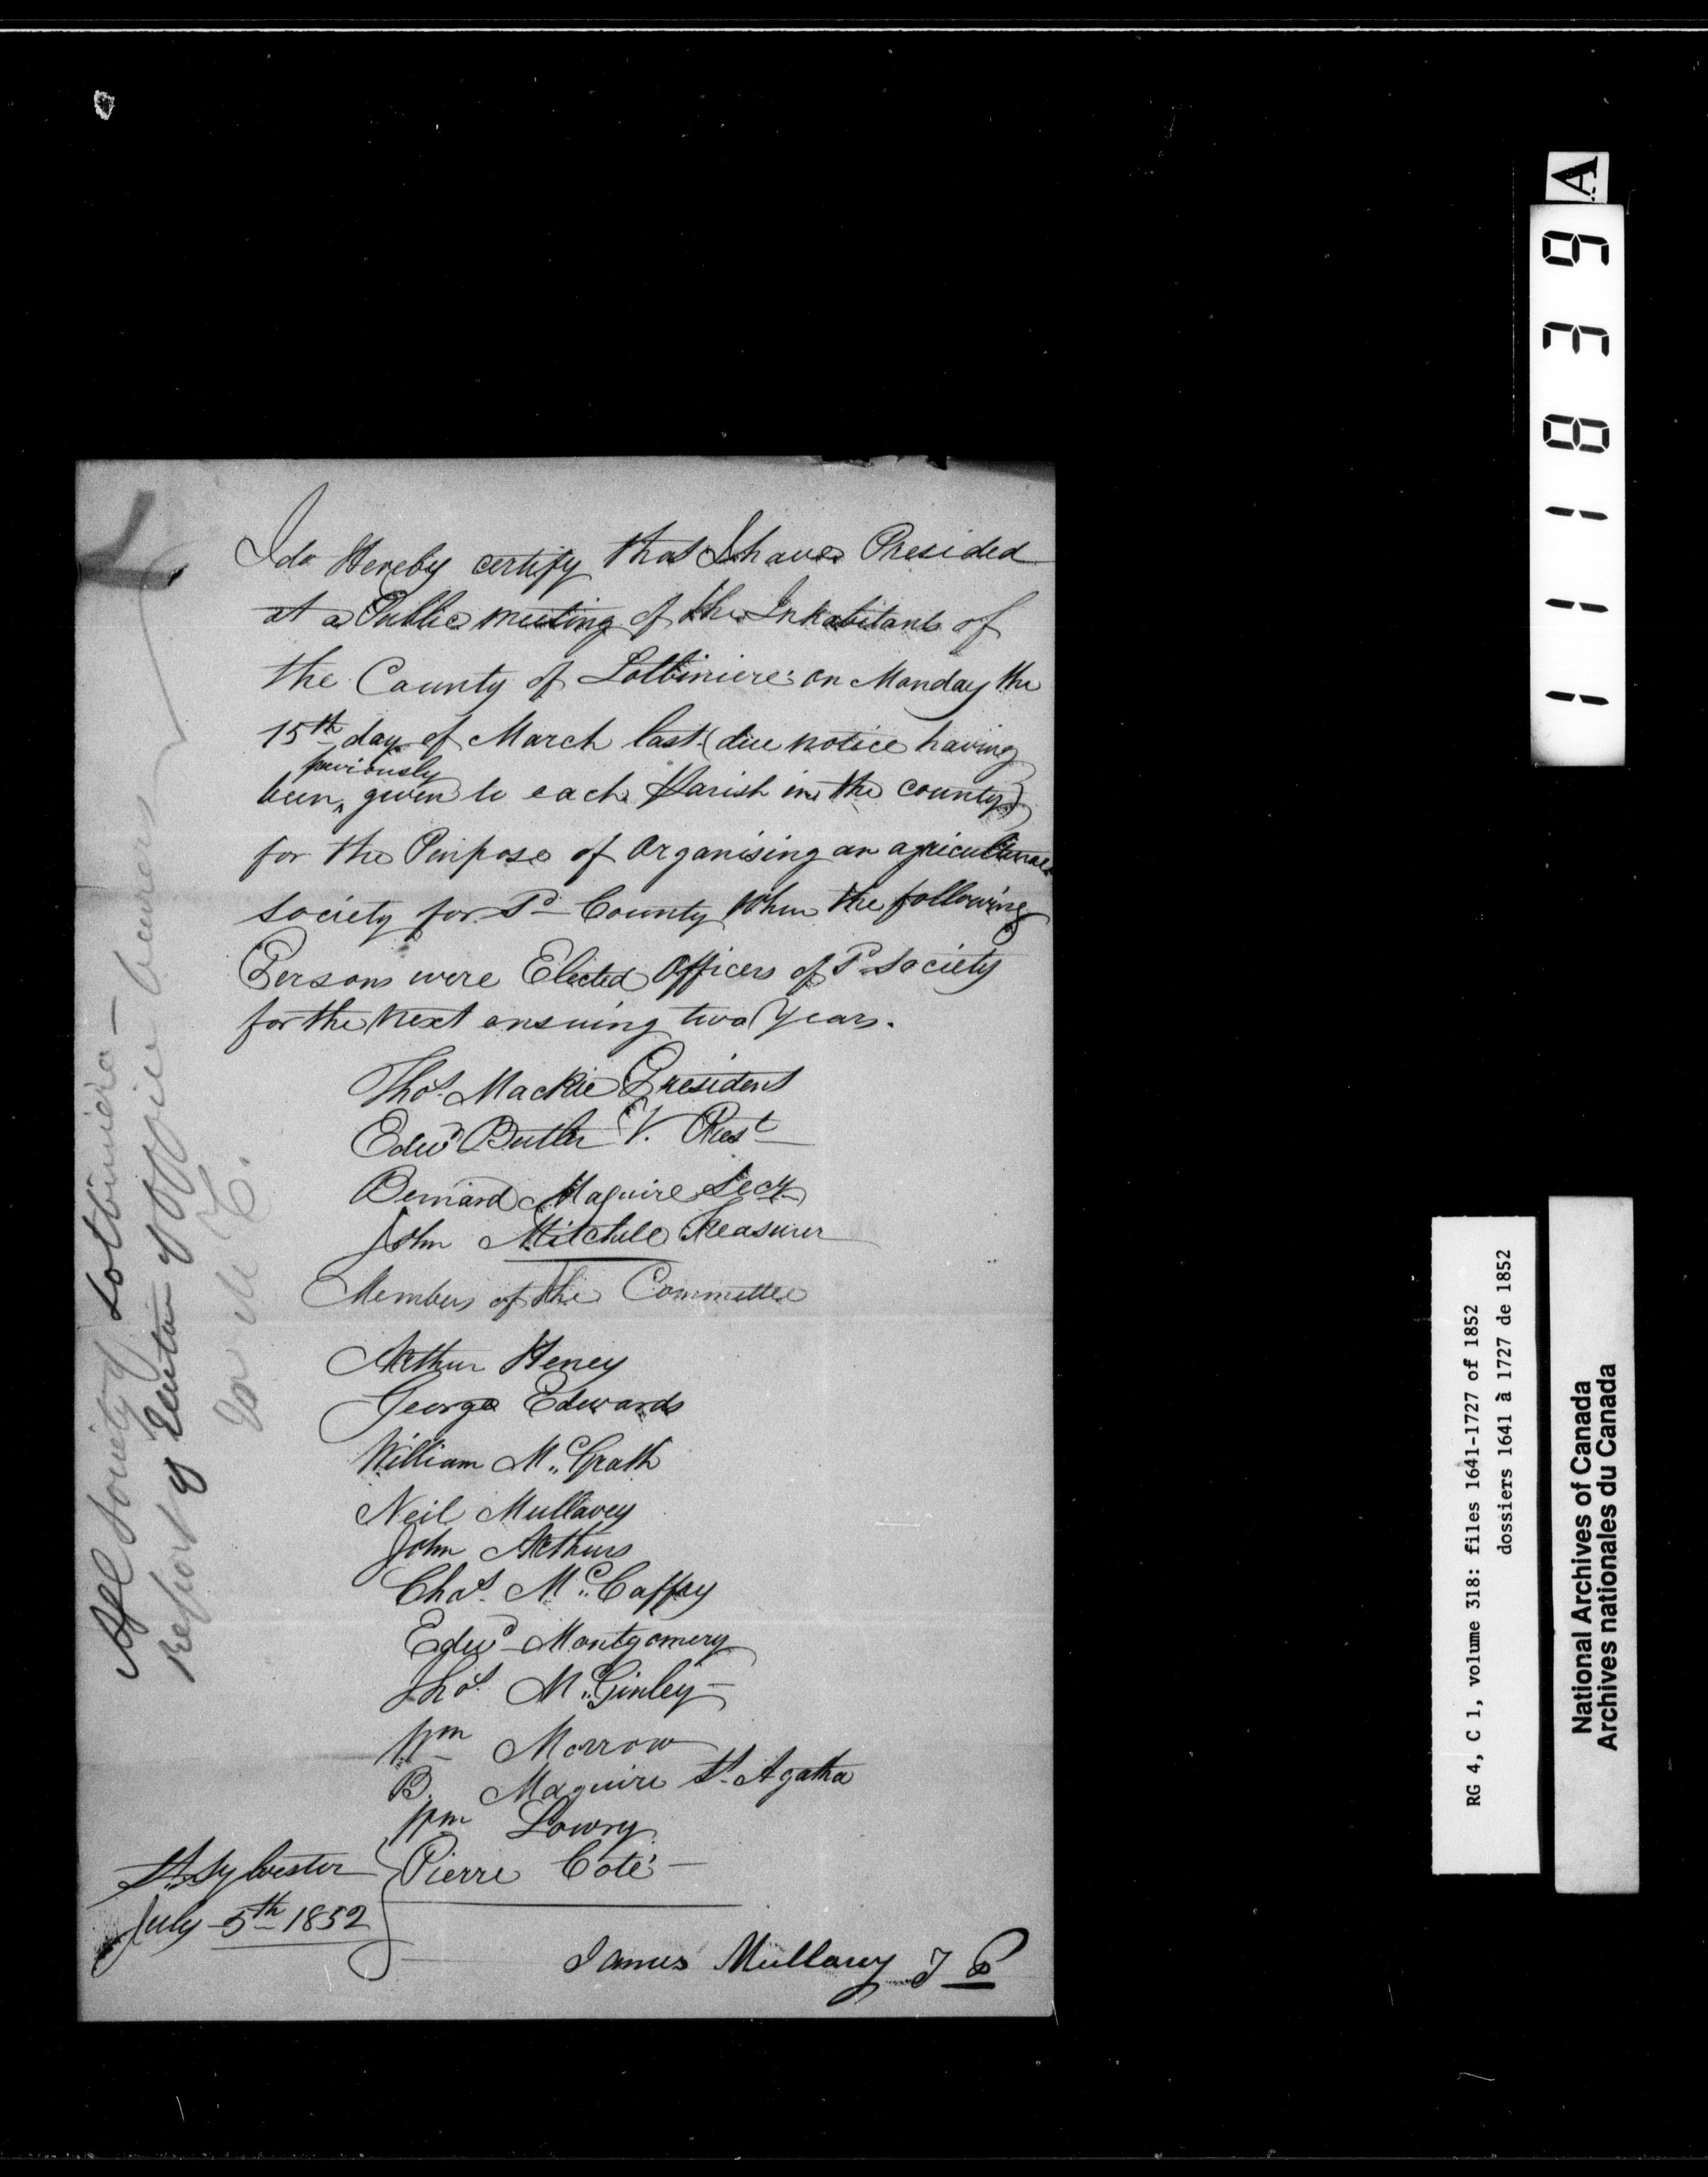 I do Hereby certify that I have Presided
at a Public meeting of the Inhabitants of
the County of Lotbiniere on Monday the
15th day of March last (due notice having
previously
been ‸ given to each Parish in the county)
for the Purpose of Organising an agricultural
Society for Sd County When the following
Persons were Elected Officers of Sd Society
for the Next ensuing two Years.
Thos. Mackie President
Edwd Butler V. Prest
Bernard Maguire Secy
John Mitchell Treasurer
Members of the Committee
Arthur Heney
George Edwards
William McGrath
Neil Mullavey
John Arthurs
Chas. McCaffry
Edwd Montgomery
Thos. McGinley
Wm Morrow
B. Maguire St. Agatha
Wm Lowry
Pierre Coté
St. Sylvester
July 5th 1852
James Mullavy J P
Agl Society of Lotbiniere
Report of Election of Office bearers
111839
A
RG 4, C 1, volume 318: files 1641-1727 of 1852
dossiers 1641 à 1727 de 1852
National Archives of Canada
Archives nationales du Canada